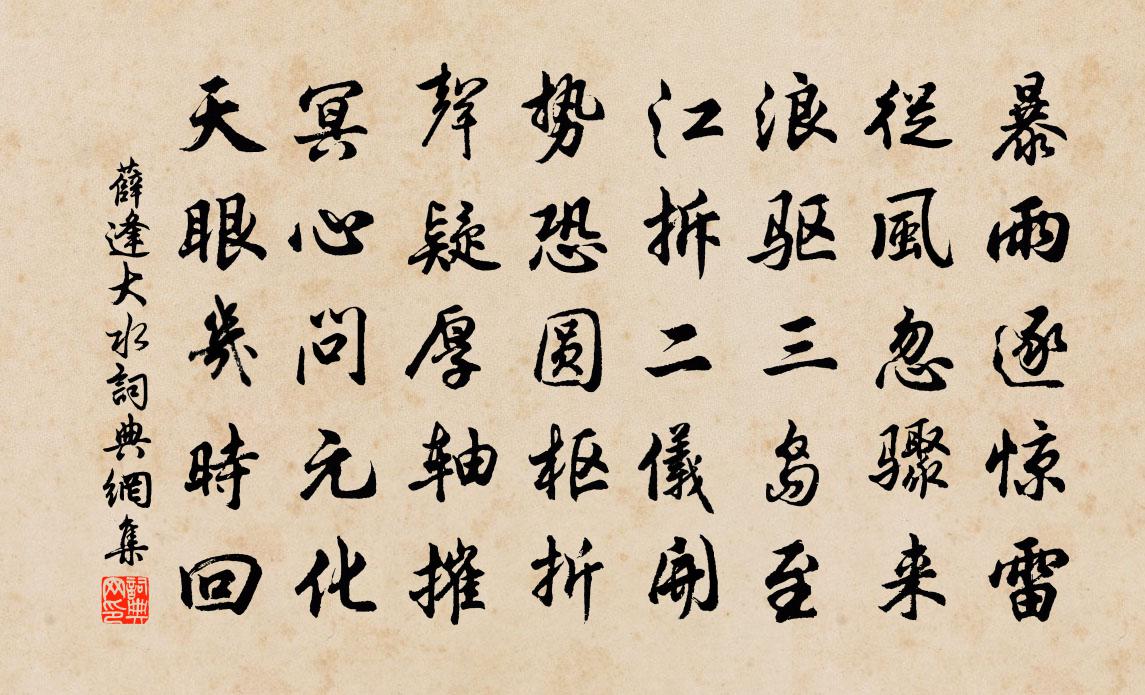 暴雨逐惊雷
從風忽骤来
浪驱三岛至
江拆二儀開
势恐圆枢折
聲疑厚轴摧
冥心問元化
天眼幾時回
薛逢大水詞典網集
詞典网印